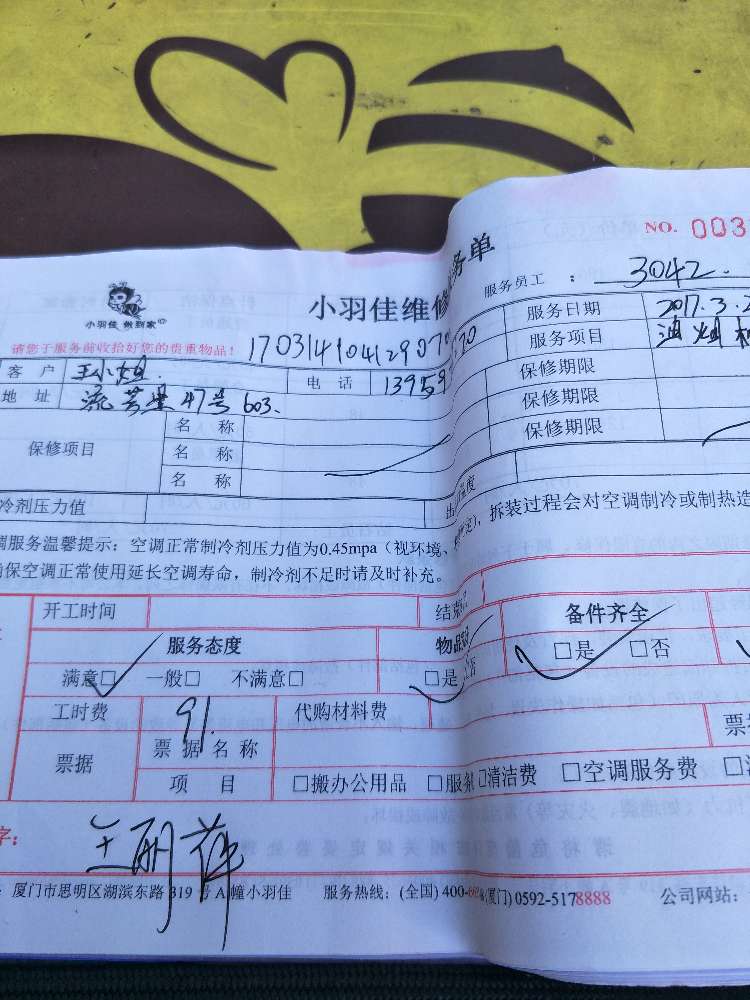 NO. 003
务单
小羽佳维修
服务员工 : 3042
小羽佳 做到家
请您于服务前收拾好您的贵重物品！
服务日期 2017.3.2
服务项目 油烟机
客 户 王小姐. 电 话 13959
地 址 47号 603.
保修项目
名 称 保修期限
名 称 保修期限
名 称 保修期限
冷剂压力值
调服务温馨提示：空调正常制冷剂压力值为0.45mpa（视环境、 拆装过程会对空调制冷或制热造
保空调正常使用延长空调寿命，制冷剂不足时请及时补充。
开工时间 结束
服务态度 物品 备件齐全
满意□ 一般□ 不满意□ □是 否 □是 □否
工时费 91. 代购材料费 票
票据 票 据 名 称
项 目 □搬办公用品 □服务 □清洁费 □空调服务费
字：
厦门市思明区湖滨东路 319 号 A 幢小羽佳 服务热线：(全国) 400- (厦门) 0592-5178888 公司网站：